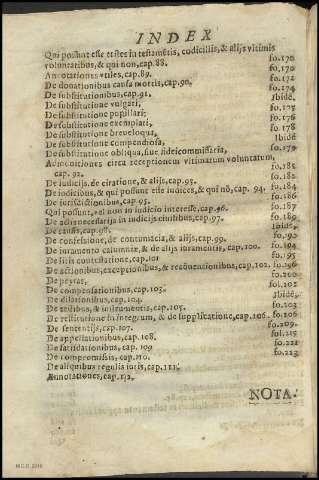 INDEX
Qui possunt esse testes in testamētis, codicillis, & alijs vltimis
voluntatibus, & qui non, cap. 88. fo.170
Annotationes vtiles, cap. 89. fo.170
De donationibus causa mortis, cap. 90. fo.172
De substitutionibus, cap. 91. fo.174
De substitutione vulgari, Ibidē.
De substitutione pupillari; fo.175
De substitutione exemplari, fo.176
De substitutione breueloqua, fo.178
De substitutione compendiosa, Ibidē
De substitutione obliqua, siue fideicommissaria, fo.179
Admonitiones circa receptionem vltimatum voluntatum,
cap. 92. fo.182
De iudicijs, de citatione, & alijs, cap. 93. fo.182
De iudicibus, & qui possunt esse iudices, & qui nō, cap. 94. fo.184
De iurisdictionibus, cap. 95. fo.186
Qui possunt, vel non in iudicio interesse, cap. 96. fo.187
De actis necessarijs in iudicijs ciuilibus, cap. 97. fo.189
De causis, cap. 98. Ibidē,
De confessione, de contumacia, & alijs, cap. 99. fo.190
De iuramento calumniæ, & de alijs iuramentis, cap. 100. fo.194
De litis contestatione, cap. 101 fo.195
De actionibus, exceptionibus, & recōuentionibus, cap. 102. fo.196
De pœnis, fo.200
De compensationibus, cap. 103. fo.202
De dilationibus, cap. 104. Ibidē,
De testibus, & instrumentis, cap. 105. fo.203
De restitutione in integrum, & de supplicatione, cap. 106. fo.206
De sententijs, cap. 107. fo.209.
De appellationibus, cap. 108. fol.215
De satisdationibus, cap. 109 fo.222
De compromissis, cap. 110. fo.223
De aliquibus regulis iuris, cap. 111.
Annotationes, cap. 112.
NOTA.